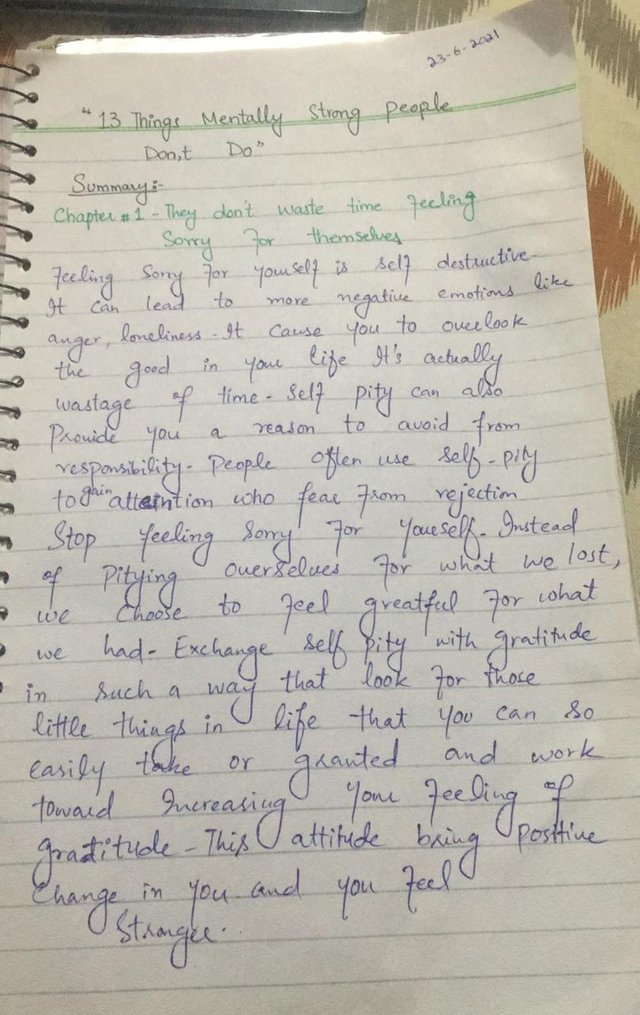 23-6-2021
"13 Things Mentally Strong People
Don,t Do"
Summary:-
Chapter #1 - They don't waste time Feeling
Sorry For themselves
Feeling Sorry For yourself is self destructive-
It can lead to more negative emotions like
anger, loneliness - It cause you to overlook
the good in your life It's actually
wastage of time - Self pity can also
Provide you a reason to avoid from
responsibility - People often use self-pity
to gain attaintion who fear From rejection
Stop feeling Sorry For yourself - Instead
of Pitying ourselves For what we lost,
we Choose to Feel greatful For what
we had - Exchange self pity with gratitude
in such a way that look For those
little things in life that you can so
easily take or granted and work
toward Increasing your Feeling of
gratitude - This attitude bring positive
Change in you and you Feel
Stronger.